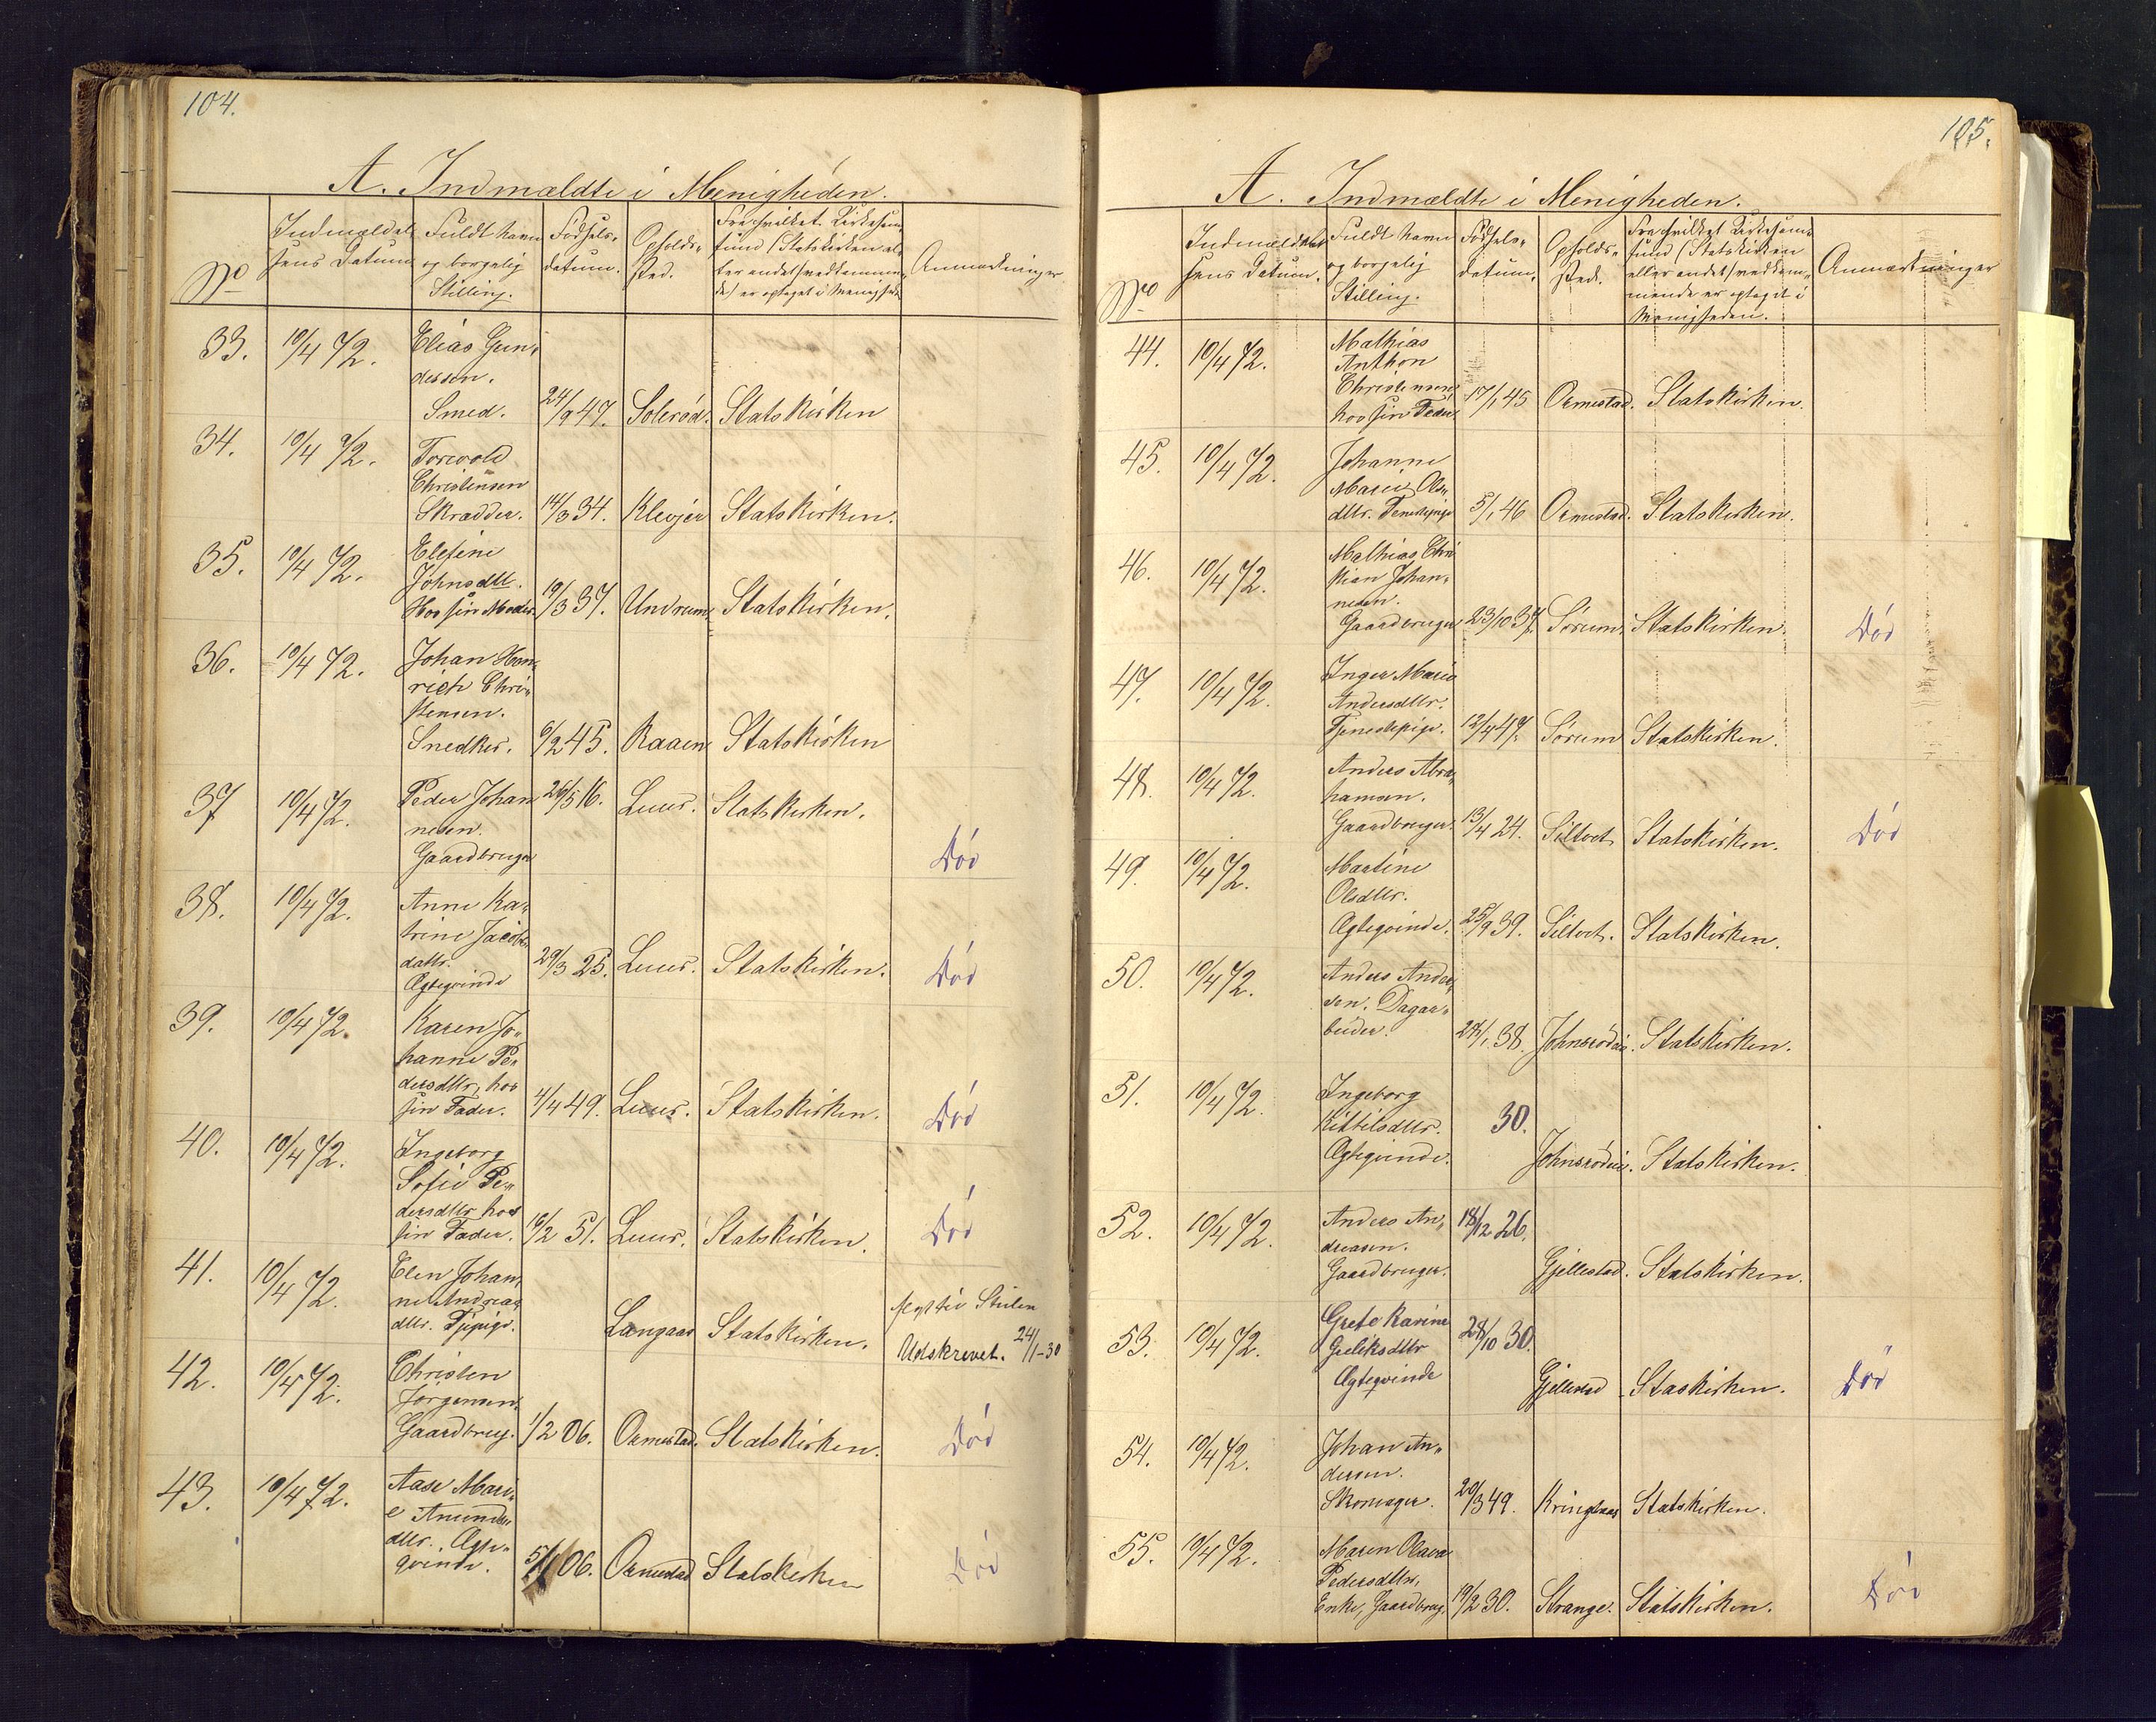 104.
A. Indmældte i Menigheden.
No
Indmældel-
sens Datum
Fuldt Navn
og borgelig
Stilling.
Fødsels-
datum.
Opholds-
sted.
Fra hvilket Kirkesam-
fund (Statskirken el-
ler andet) vedkommen-
de er optaget i Menighed
Anmærkninger
33. 10/4 72. Elias Gun-
dersen.
Smed. 24/9 47. Solerød. Statskirken
34. 10/4 72. Torvald
Christensen
Skrædder. 14/3 34. Klevjer Statskirken.
35. 10/4 72. Elefine
Johnsdtt.
Hos sin Moder 19/3 37. Undrum Statskirken.
36. 10/4 72. Johan Hen-
rich Chri-
stensen.
Snedker. 6/2 45. Raaen Statskirken
37 10/4 72. Peder Johan 26/5 16. Luus. Statskirken.
nesen.
Gaardbruger Død
38. 10/4 72. Anne Ka-
trine Jacobs-
datter.
Ægteqvinde 29/3 25. Luus. Statskirken. Død
39. 10/4 72. Karen Jo-
hanne Pe-
dersdttr, hos
sin Fader. 4/4 49. Luus. Statskirken. Død
40. 10/4 72. Ingeborg
Sofie Pe-
dersdttr hos
sin Fader. 16/2 51. Luus. Statskirken. Død
41. 10/4 72. Elen Johan-
ne Andreas
dttr. Tjpige. Langaas Statskirken. Stulen
Udskrevet. 24/1-30
42. 10/4 72. Christen
Jørgensen.
Gaardbrug. 1/2 06. Ormestad. Statskirken. Død
43. 10/4 72. Aase Mari-
e Amunds-
dttr. Ægte-
qvinde. 06. Ormestad Statskirken Død
105.
A. Indmældte i Menigheden.
No
Indmældel-
sens Datum.
Fuldt Navn
og borgelig
Stilling.
Fødsels-
datum.
Opholds-
sted.
Fra hvilket Kirkesam-
fund (Statskirken
eller andet) vedkom-
mende er optaget i
Menigheden.
Anmærkninger
44. 10/4 72. Mathias
Anthon
Christensen
hos sin Fader 17/1 45 Ormestad. Statskirken.
45. 10/4 72. Johanne
Marie Ols-
dttr. Tjenestepige 5/1 46 Ormestad. Statskirken.
46. 10/4 72. Mathias Chri
stian Johan-
nesen.
Gaardbruger 23/10 37. Sørum. Statskirken. Død
47. 10/4 72. Inger Marie
Andersdttr.
Tjenestepige. 12/4 47. Sørum Statskirken.
48. 10/4 72. Anders Abra-
hamsen.
Gaardbruger. 13/4 24. Siltvet Statskirken. Død
49. 10/4 72. Martine
Olsdttr.
Ægteqvinde. 25/9 39. Siltvet. Statskirken.
50. 10/4 72. Anders Ander-
sen. Dagar-
beider. 28/1 38. Johnsrødeie. Statskirken.
51. 10/4 72. Ingeborg
Kittilsdttr. 30.
Ægteqvinde. Johnsrødeie. Statskirken.
52. 10/4 72. Anders An- 18/12 26.
dreasen.
Gaardbruger. Gjellestad. Statskirken.
53. 10/4 72. Grete Karine 28/10 30.
Guliksdttr
Ægteqvinde Gjellestad Staskirken. Død
54. 10/4 72. Johan An-
dersen.
Skomager. 20/3 49. Kringlaas Statskirken.
55. 10/4 72. Maren Olava
Pedersdttr,
Enke, Gaardbrug. 19/2 30. Strange. Statskirken. Død